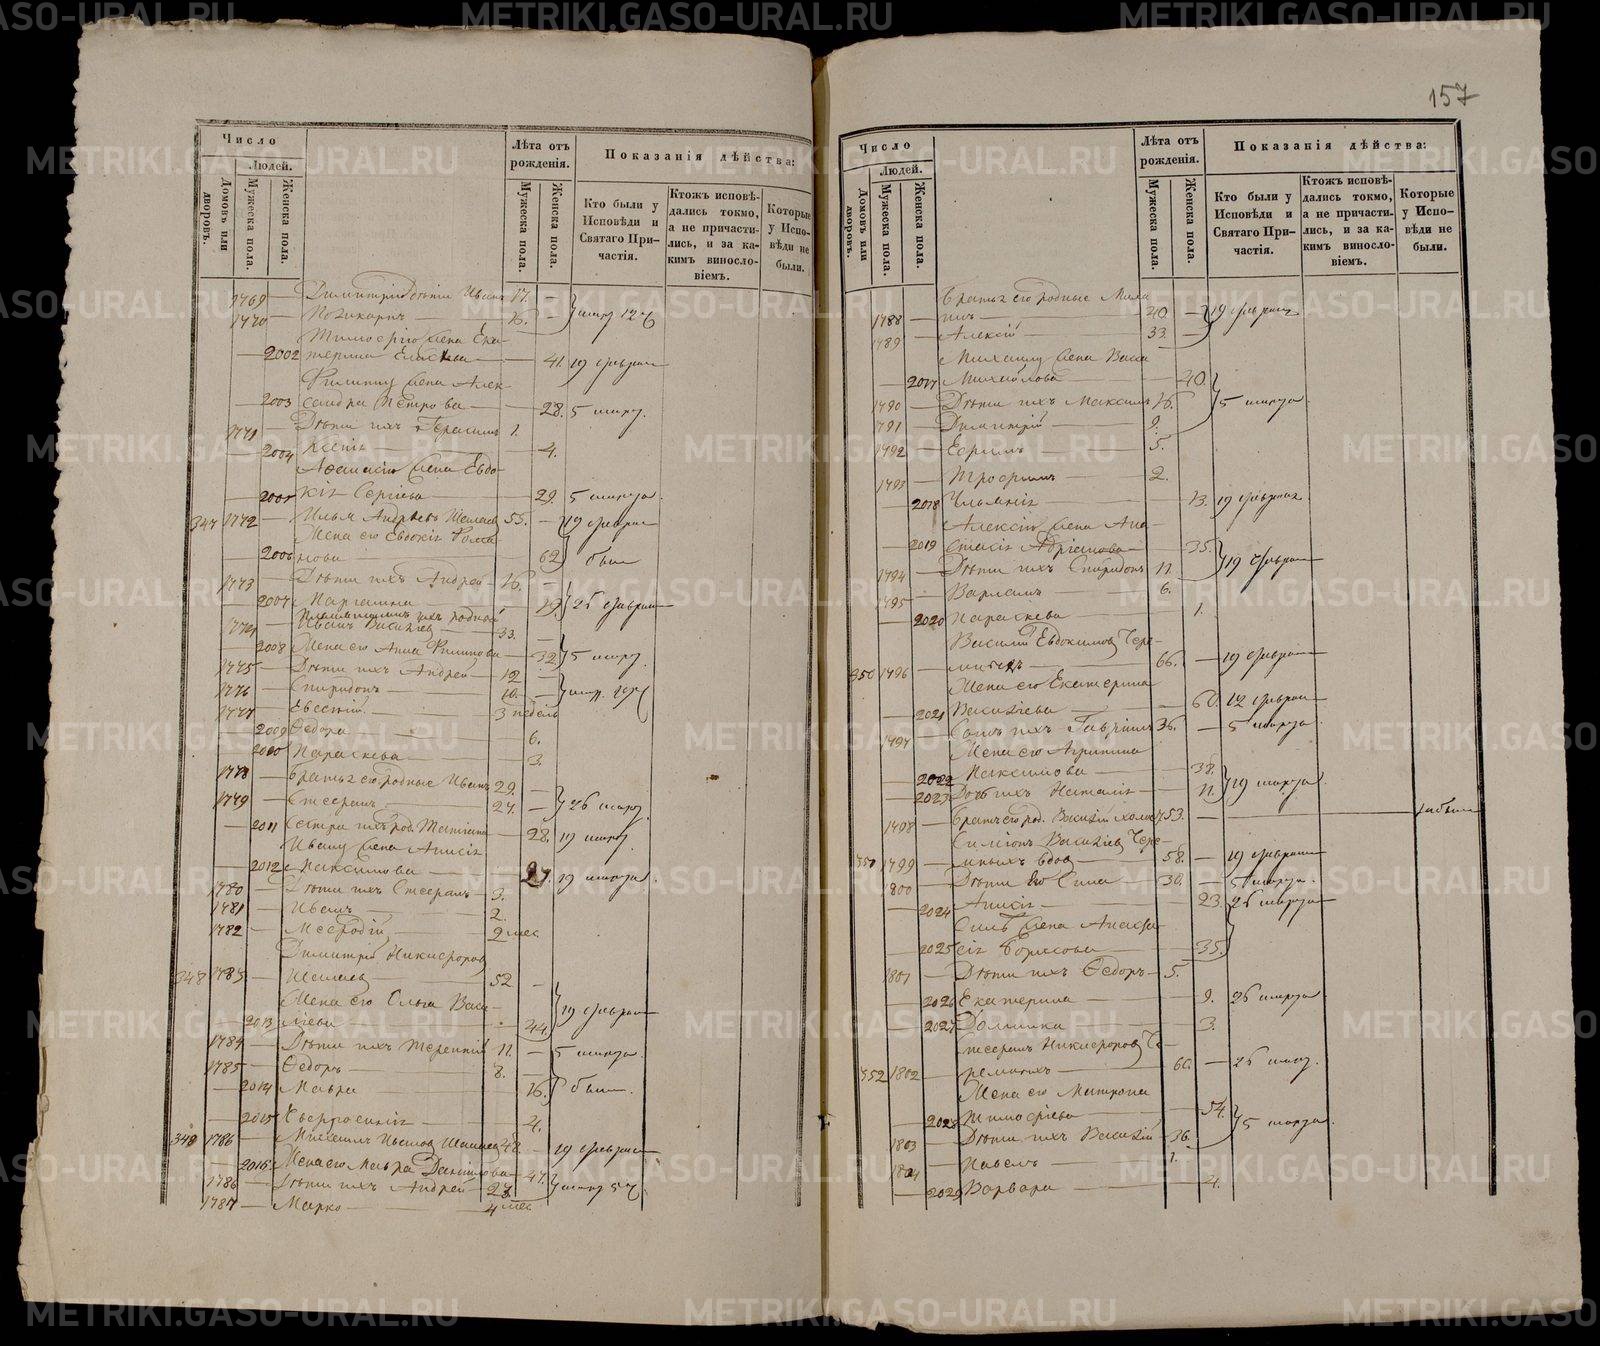 157
Число
Людей.
Домовъ или дворовъ.
Мужеска пола.
Женска пола.
Лѣта отъ рожденія.
Мужеска пола.
Женска пола.
Показанія дѣйства:
Кто были у Исповѣди и Святаго Причастія.
Ктожъ исповѣдались токмо, а не причастились, и за какимъ винословіемъ.
Которые у Исповѣди не были.
1769 — Димитрій Иванъ 17.
1770 — Поликарпъ — 16. 12
Тимоѳею жена Ека-
— 2002 терина — 41. 19 февраля
Филиппу жена Алек-
— 2003 сандра Петрова — 28. 5 марта.
1771 — Дѣти ихъ Герасимъ 1.
— 2004 Ксенія — 4.
Аѳанасію жена Евдо-
— 2005 кія Сергіева — 29. 5 марта.
347 1772 — Илья Андреевъ 55. — 19 февраля
Жена его Евдокія Рома-
— 2006 нова — 62 были
1773 — Дѣти ихъ Андрей — 16. —
— 2007 Марѳа 19. 25 февраля
Иванъ Васильевъ — 33. —
— 2008 Жена его Анна Филипова — 32. 5 марта
1775 — Дѣти ихъ Андрей — 12 —
1776 — Спиридонъ — 10. —
1777 — Евсевій — 3 недѣль
— 2009 Ѳедора — 6.
— 2010 Параскева — 3.
1778 — Братья его родные Иванъ 29. —
1779 — Стефанъ — 27. — 26 марта
— 2011 Сестра ихъ род. Татіана — 28. 19 марта
Ивану жена Анисія
— 2012 Максимова — 27. 19 марта.
1780 — Дѣти ихъ Стефанъ — 3.
1781 — Иванъ — 2.
1782 — Меѳодій — 2 мес
Димитрій Никифоровъ
348 1783 — 52 —
Жена его Ольга Васи-
— 2013 ліева — 44. 19 февраля
1784 — Дѣти ихъ Терентій 11. — 5 марта.
1785 — Ѳедоръ — 8. —
— 2014 Мавра — 16. были.
— 2015 Евфросинія — 4.
349 1786 — Михаилъ Ивановъ 48. — 19 февраля
— 2016 Жена его Мавра Данилова — 47.
1786 — Дѣти ихъ Андрей — 23.
1787 — Марко — 4 мес
Число
Людей.
Домовъ или дворовъ.
Мужеска пола.
Женска пола.
Лѣта отъ рожденія.
Мужеска пола.
Женска пола.
Показанія дѣйства:
Кто были у Исповѣди и Святаго Причастія.
Ктожъ исповѣдались токмо, а не причастились, и за какимъ винословіемъ.
Которые у Исповѣди не были.
Братья его родные Миха
1788 — илъ — 40 — 19 февраля
1789 — Алексій — 33. —
Михаилу жена Васса
— 2017 Михайлова — 40.
1790 — Дѣти ихъ Максимъ 16. 5 марта
1791 — Димитрій — 9.
1792 — Ефимъ — 5.
1793 — Трофимъ — 2.
— 2018 Ульянія — 13. 19 февраля
Алексію жена Ана-
— 2019 стасія Адріанова — 35.
1794 — Дѣти ихъ Спиридонъ 11. 19 февраля
1795 — Варламъ — 6.
— 2020 Параскева — 1.
Василій Евдокимовъ Чере-
350 1796 — 66. — 19 февраля
Жена его Екатерина
— 2021 Васильева — 60. 12 февраля
1797 — Сынъ ихъ Гавріилъ 36. — 5 марта
Жена его Агрипина
— 2022 Максимова — 38.
— 2023 Дочь ихъ Наталія — 11. 19 марта.
1798 — Братъ его род. Василій холос. 53. —
Симеонъ Васильевъ Чере-
351 1799 — мныхъ вдов — 58. — 19 февраля
1800 — Дѣти его Сила — 30. — 5 марта.
— 2024 Анисія — 23. 26 марта
Силѣ жена Анаста-
— 2025 сія Борисова — 35.
1801 — Дѣти ихъ Ѳедоръ — 5.
— 2026 Екатерина — 9. 26 марта
— 2027 Домника — 3.
Стефанъ Никифоровъ Че-
352 1802 — ремныхъ — 60. — 26 марта.
Жена его Матрона
— 2028 Тимоѳеева — 54. 5 марта
1803 — Дѣти ихъ Василій — 36.
1804 — Павелъ — 1.
— 2029 Варвара — 4.
METRIKI.GASO-URAL.RU